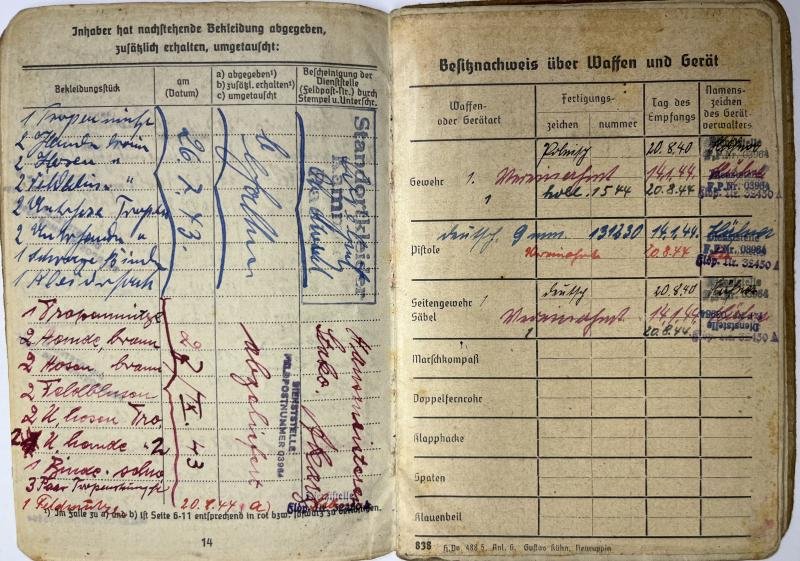 Inhaber hat nachstehende Bekleidung abgegeben,
zusätzlich erhalten, umgetauscht:
Bekleidungsstück
am
(Datum)
a) abgegeben¹)
b) zusätzl. erhalten¹)
c) umgetauscht
Bescheinigung der
Dienststelle
(Feldpost-Nr.) durch
Stempel u. Unterschr.
1 Tropenmütze
2 Hemden braun
2 Hosen "
2 Feldblusen "
2 Unterhosen Tropen
2 Unterhemden "
1 schwarze Binde
1 Kleidersack
26.7.43.
b
erhalten
Standortkleider
1 Tropenmütze
2 Hemde, braun
2 Hosen, braun
2 Feldblusen
2 U, hosen Tro
2 U, hemde "
1 Binde
3 Paar Tropenstrümpfe
1 Feldmütze 20.8.44 a)
2/IX. 43
abgeliefert
DIENSTSTELLE
FELDPOSTNUMMER 03964
Dienststelle
¹) Im Falle zu a) und b) ist Seite 6-11 entsprechend in rot bzw. schwarz zu berichtigen.
14
Besitznachweis über Waffen und Gerät
Waffen-
oder Gerätart
Fertigungs-
zeichen
nummer
Tag des
Empfangs
Namens-
zeichen
des Gerät-
verwalters
Gewehr
1.
Polnisch
20.8.40
Vereinnahmt
14.1.44
1 holl. 1544 20.8.44
F.P.Nr. 03964
Pistole
deutsch. 9 mm. 131230 14.1.44.
Vereinnahmt 20.8.44
Dienststelle
F.P.Nr. 03964
Seitengewehr
Säbel
1
deutsch
20.8.40
Vereinnahmt
14.1.44
1
20.8.44.
Dienststelle
Marschkompaß
Doppelfernrohr
Klapphacke
Spaten
Klauenbeil
838 H.Dv. 488/5, Anl. 6. Gustav Kühn, Neuruppin